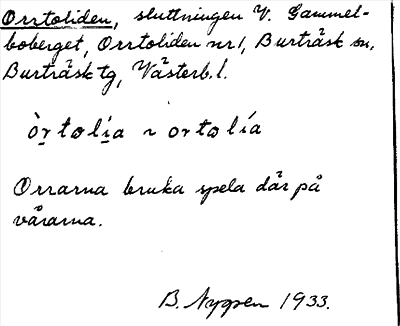 Orrtoliden, sluttningen V. Gammel-
boberget, Orrtoliden nr 1, Burträsk sn,
Burträsk tg, Västerb. l.
òr̥tolí̱a ~ ortolía
Orrarna bruka spela där på
vårarna.
B. Nygren 1933.